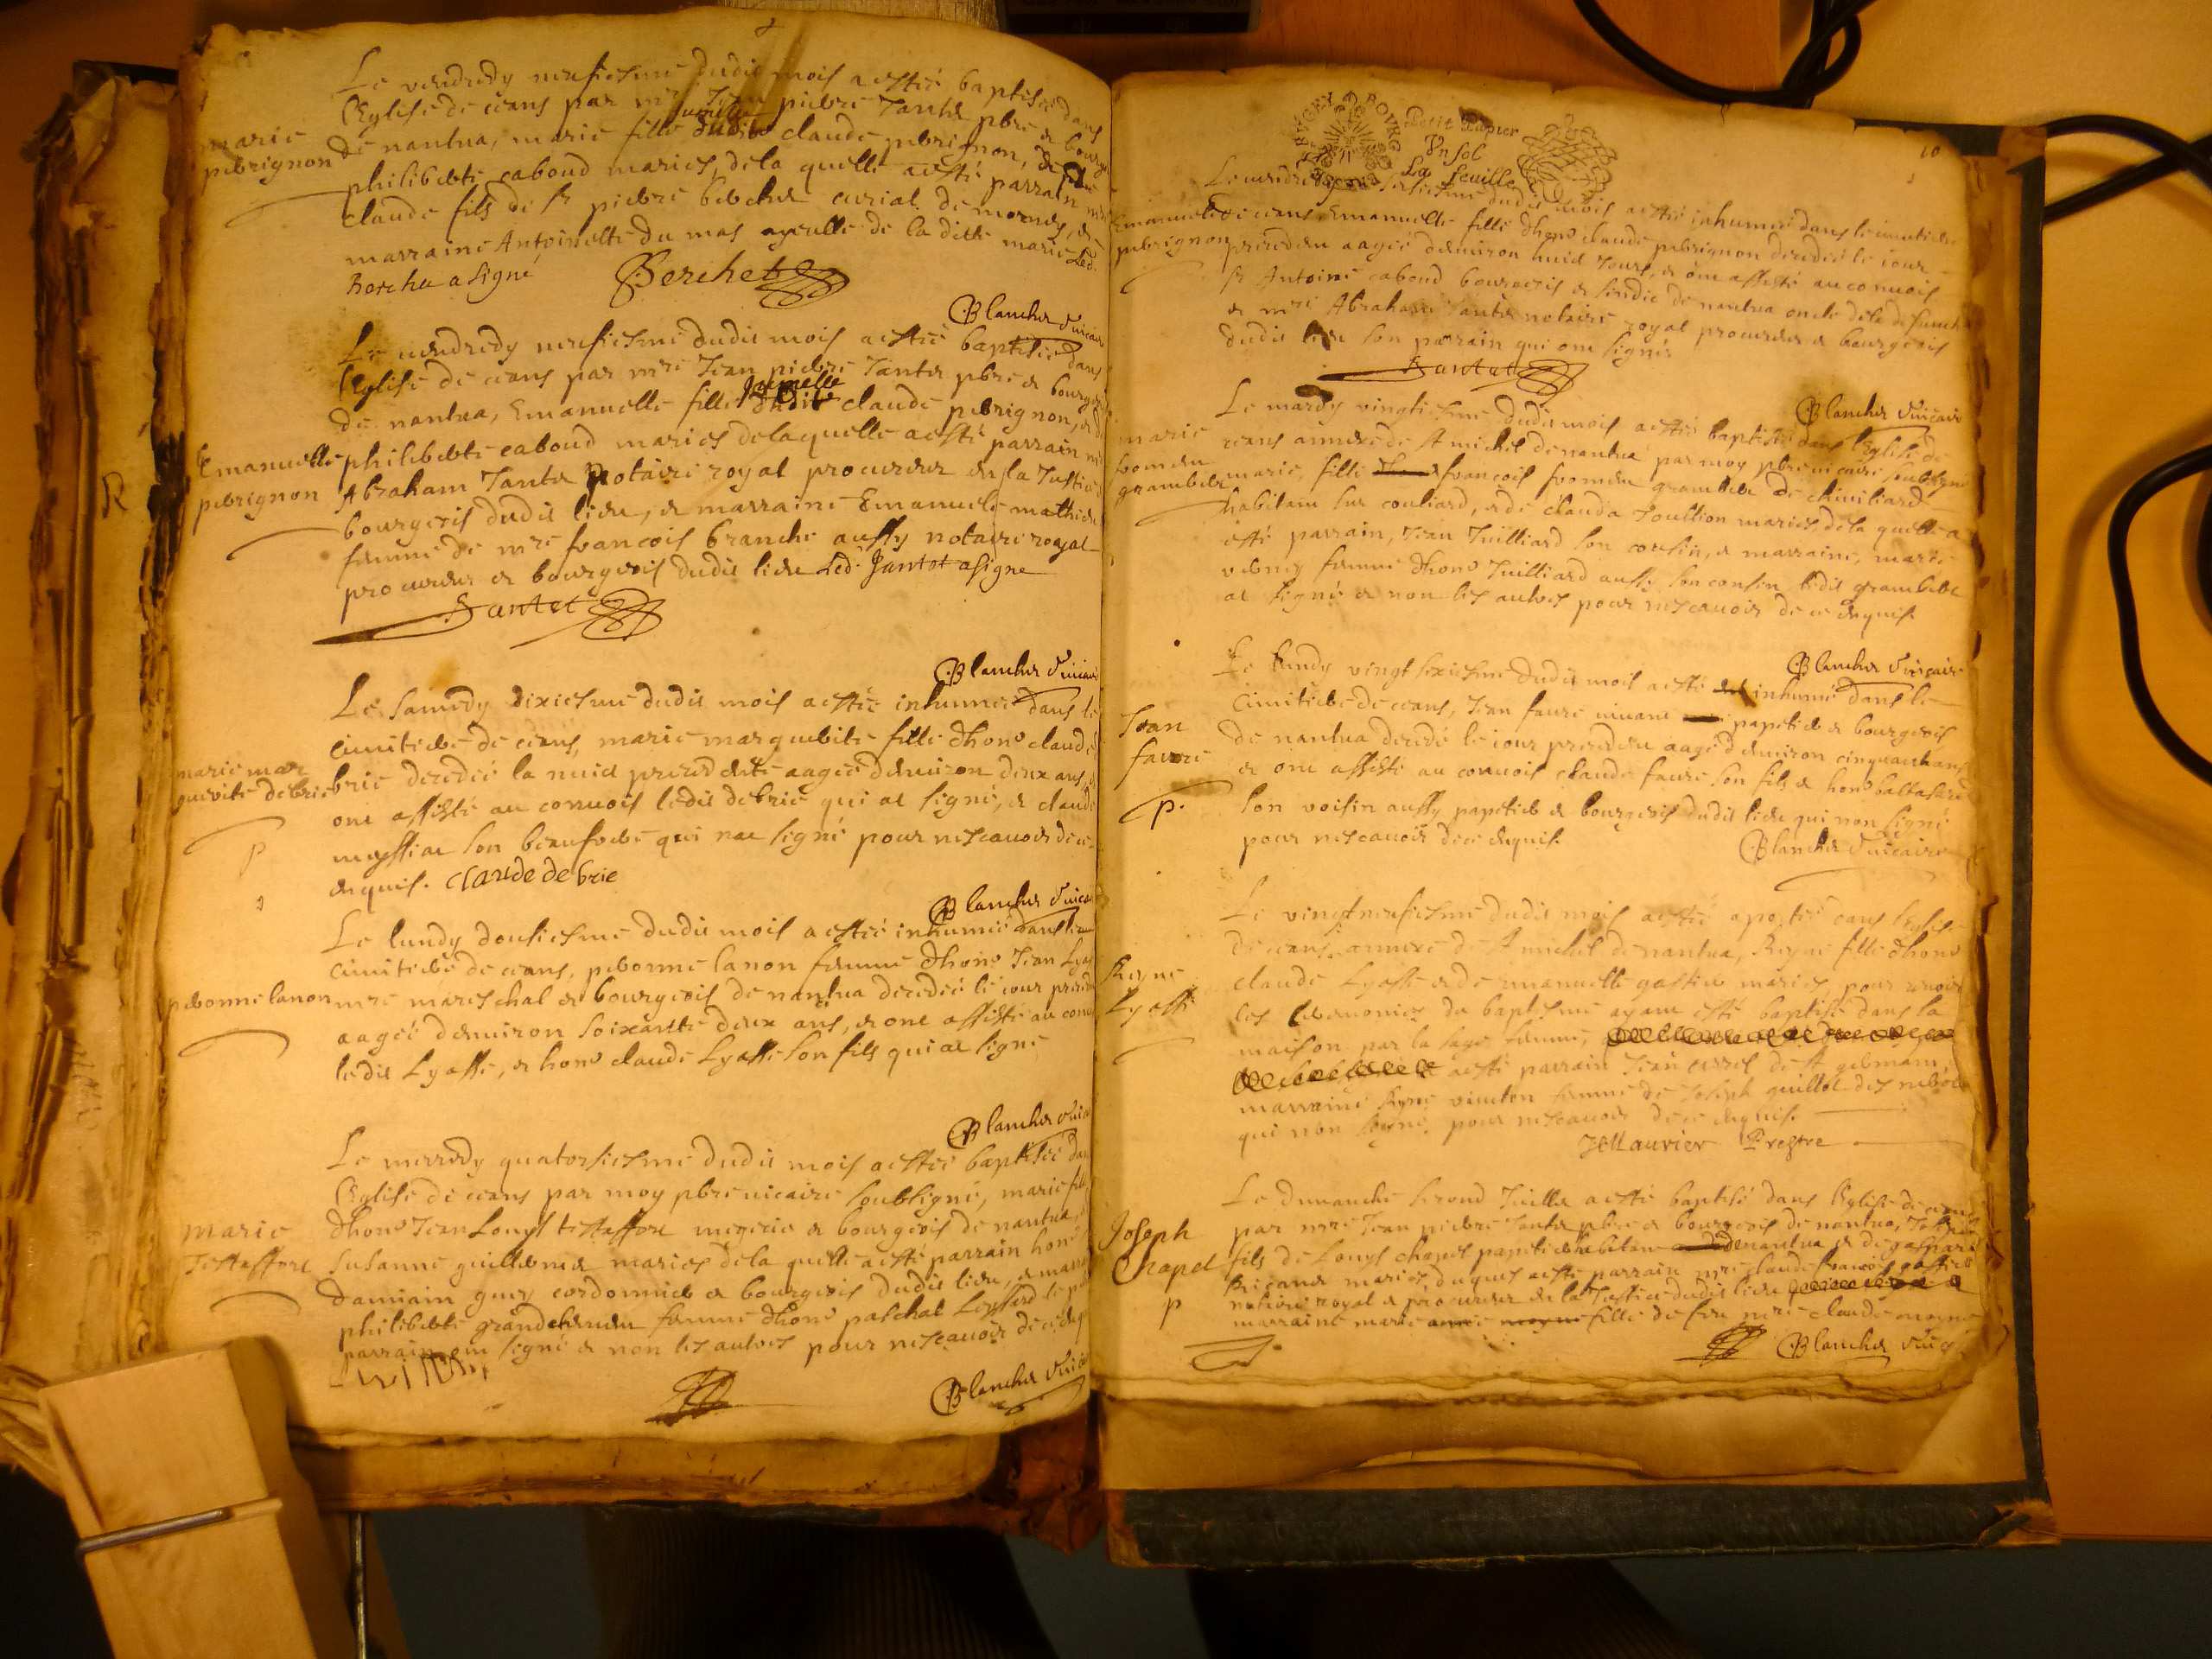 Le vendredy neufiesme dudit mois a esté baptisée dans
l'Eglise de ceans par mre Jean pierre Jantet pbre et bourgeois
marie perrignon
de nantua, marie fille jumelle claude perrignon, et de
philiberte caboud mariés, de la quelle a esté parrain mre
claude fils de sr pierre berchet curial de mornay, et
marraine Antoinette du mas ayeulle de la ditte marie led.
Berchet a signé
Berchet
Blanchet Vicaire
Le vendredy neufiesme dudit mois a esté baptisée dans
l'Eglise de ceans par mre Jean pierre Jantet pbre et bourgeois
de nantua, Emanuelle fille jumelle dudit claude perrignon, et de
Emanuelle perrignon
philiberte caboud mariés de laquelle a esté parrain mre
Abraham Jantet Notaire royal procureur en la Justice
bourgeois dudit lieu, et marraine Emanuele mathieu
femme de mre francois branche aussy notaire royal
procureur et bourgeois dudit lieu led. Jantet a signe
Jantet
Blanchet Vicaire
Le samedy dixiesme dudit mois a esté inhumée dans le
cimitiere de ceans, marie marguerite fille dhono claude
marie marguerite debrie
brie decedée la nuict precedente aagée denviron deux ans, et
ont assisté au convois ledit debrie qui at signé, et claude
son beaufrere qui nat signé pour nescavoir de ce
enquis. Claude de brie
p
Blanchet Vicaire
Le lundy dousiesme dudit mois a esté inhumée dans le
cimitiere de ceans, peronne lanon femme dhono Jean Lyasse
peronne lanon
mre mareschal et bourgeois de nantua decedée le jour precedent
aagée denviron soixante deux ans, et ont assisté au convois
ledit Lyasse, et hono claude Lyasse son fils qui at signe
Blanchet Vicaire
Le mercredy quatorsiesme dudit mois a esté baptisée dans
l'Eglise de ceans par moy pbre vicaire soubsigné, marie fille
marie Testaffort
dhono Jean Louys testaffort et bourgeois de nantua, et
Susanne guillermet mariés de la quelle a esté parrain hono
Damiain guey cordonnier et bourgeois dudit lieu, et marraine
philiberte femme dhono paschal le
parrain ont signé et non les autres pour nescavoir de ce enquis
Blanchet Vicaire
BVGEY BOVRG
Petit Papier
Vn sol
La feuille
10
Le vendredy dudit mois a esté inhumée dans le cimitiere
Emanuelle perrignon
de ceans, Emanuelle fille dhono claude perrignon decedée le jour
precedent aagée denviron huict jours, et ont assisté au convois
sr Antoine caboud bourgeois et sindic de nantua oncle de la defuncte
et mre Abraham Jantet notaire royal procureur et bourgeois
dudit lieu son parrain qui ont signés
Jantet
Blanchet Vicaire
Le mardy vingtiesme dudit mois a esté baptisée dans l'Eglise de
ceans annexe de st michel de nantua par moy pbre vicaire soubsigné
marie froment grambert
marie, fille francois froment grambert de chiviliard
habitant sur couliard, et de clauda Joullion mariés, de la quelle a
esté parrain, Jean Juilliard son cousin, et marraine, marie
femme dhono Juilliard aussy son cousin ledit grambert
at signé et non les autres pour nescavoir de ce enquis.
Blanchet Vicaire
Le lundy vingt sixiesme dudit mois a esté inhumé dans le
cimitiere de ceans, Jean faure vivant papetier et bourgeois
Jean faure
p.
de nantua decedé le jour precedent aagé denviron cinquant ans
et ont assisté au convois claude faure son fils et hono baltasard
son voisin aussy papetier et bourgeois dudit lieu qui non signé
pour nescavoir de ce enquis.
Blanchet Vicaire
Le vingtneufiesme dudit mois a esté apportée dans l'Eglise
de ceans annexe de st michel de nantua, Reyne fille dhono
Reyne Lyasse
claude Lyasse et de emanuelle gastier mariés, pour recevoir
les ceremonies du baptesme ayant esté baptisé dans la
maison par la sage femme,
a esté parrain Jean carrel de st germain,
marraine Reyne vincton femme de Joseph guillot des
qui non signé, pour nescavoir de ce enquis.
Maurier Prestre
Le dimanche second Juillet a esté baptisé dans l'Eglise de ceans
par mre Jean pierre Jantet pbre et bourgeois de nantua, Joseph
Joseph Chapel
p
fils de Louys chapel papetier habitant nantua et de gasparde
mariés, duquel a esté parrain mre claude francois gastier
notaire royal et procureur en la Justice dudit lieu
marraine marie fille de feu mre claude
Blanchet Vicaire